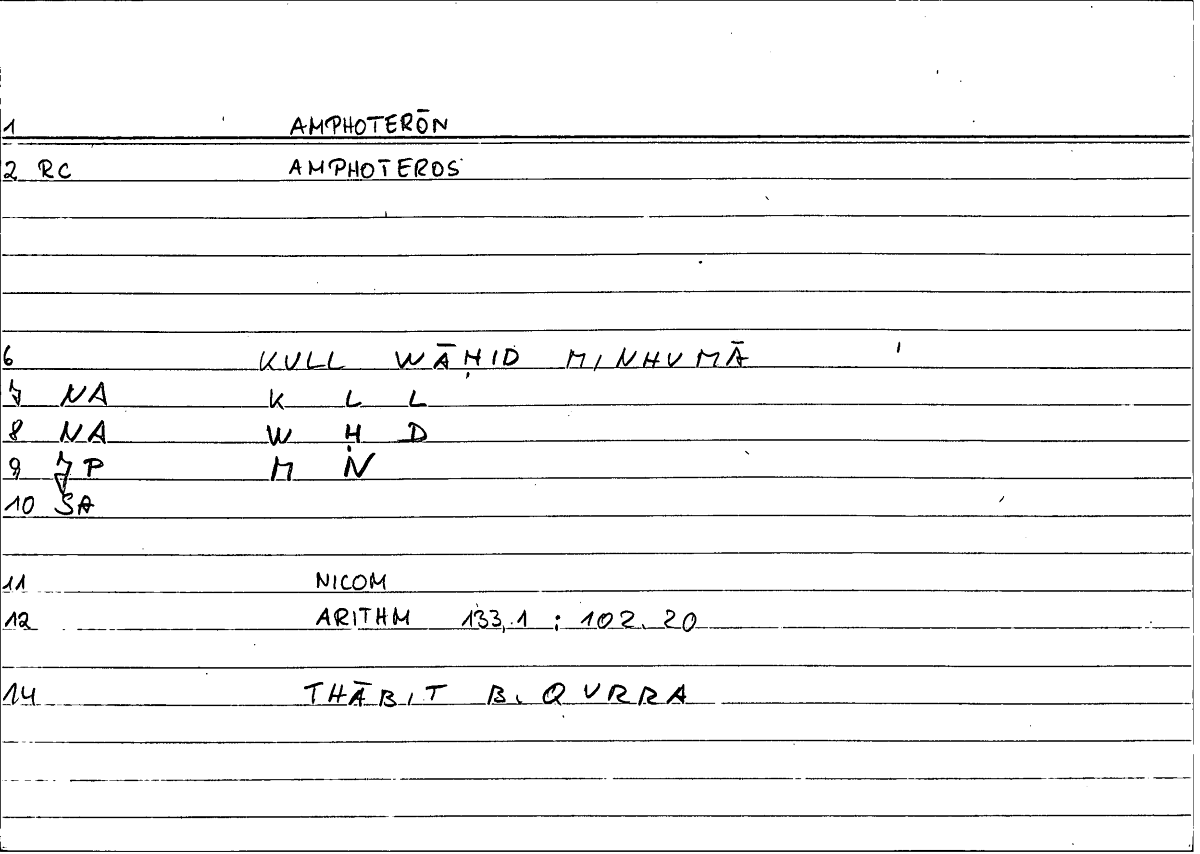 1 AMPHOTERŌN
2 RC AMPHOTEROS
6 KULL WĀḤID MINHUMĀ
7 NA K L L
8 NA W Ḥ D
9 JP M N
10 SA
11 NICOM
12 ARITHM 133,1 ; 102.20
14 THĀBIT B. QURRA